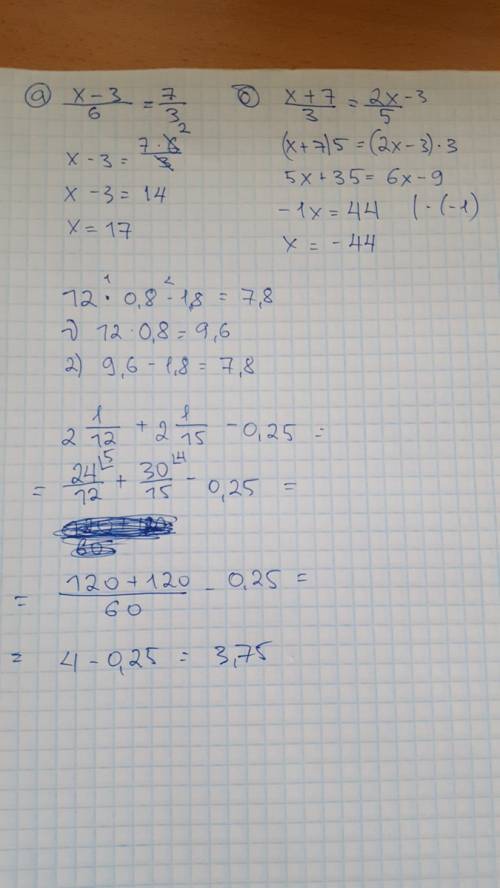 а) (x-3)/6 = 7/3
x-3 = (7·6²)/3
x-3 = 14
x = 17
б) (x+7)/3 = (2x-3)/5
(x+7)5 = (2x-3)·3
5x+35 = 6x-9
-1x = 44 |·(-1)
x = -44
12 ·¹ 0,8 -² 1,8 = 7,8
1) 12·0,8 = 9,6
2) 9,6 - 1,8 = 7,8
2 1/12 + 2 1/15 - 0,25 =
= 24/12 ⌊5 + 30/15 ⌊4 - 0,25 =
= (120+120)/60 - 0,25 =
= 4 - 0,25 = 3,75